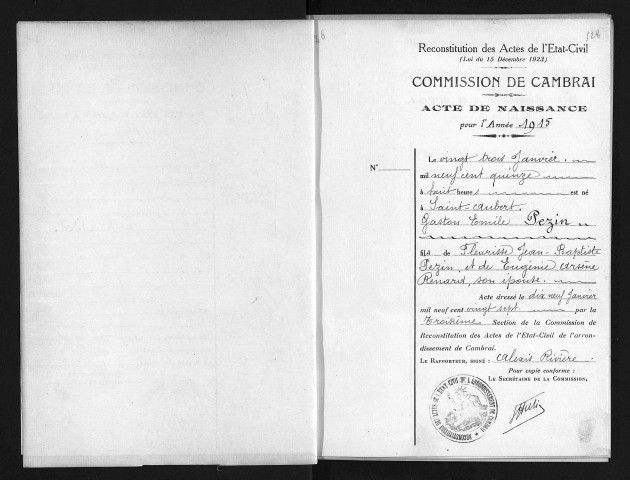 26
526
Reconstitution des Actes de l'Etat-Civil
(Loi du 15 Décembre 1923)
COMMISSION DE CAMBRAI
ACTE DE NAISSANCE
pour l'Année 1915
N°
Le vingt trois Janvier
mil neuf cent quinze
à huit heures est né
à Saint-Aubert
Gaston Emile Pezin
fils de Fleurisse Jean-Baptiste
Pezin, et de Eugénie Arsène
Renard, son épouse.
Acte dressé le dix neuf Janvier
mil neuf cent vingt sept par la
Troisième Section de la Commission de
Reconstitution des Actes de l'Etat-Civil de l'arron-
dissement de Cambrai.
LE RAPPORTEUR, SIGNÉ : Alexis Rivière.
Pour copie conforme :
LE SECRÉTAIRE DE LA COMMISSION,
RECONSTITUTION DES ACTES DE L'ÉTAT CIVIL DE L'ARRONDISSEMENT DE CAMBRAI